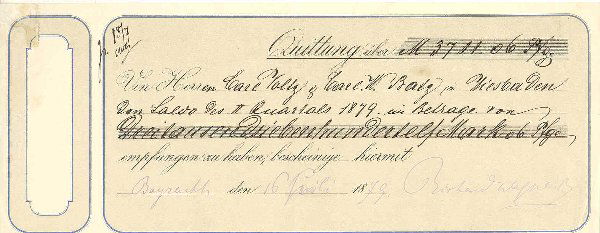 Quittung über M 3711.06 Pfge
Von Herren Carl Voltz & Carl W. Batz in Wiesbaden
den Saldo des II Quartals 1879, im Betrage von
Dreitausendsiebenhundertelf Mark 06 Pfge,
empfangen zu haben, bescheinige hiermit
Bayreuth den 16 Juli 1879 Richard Wagner